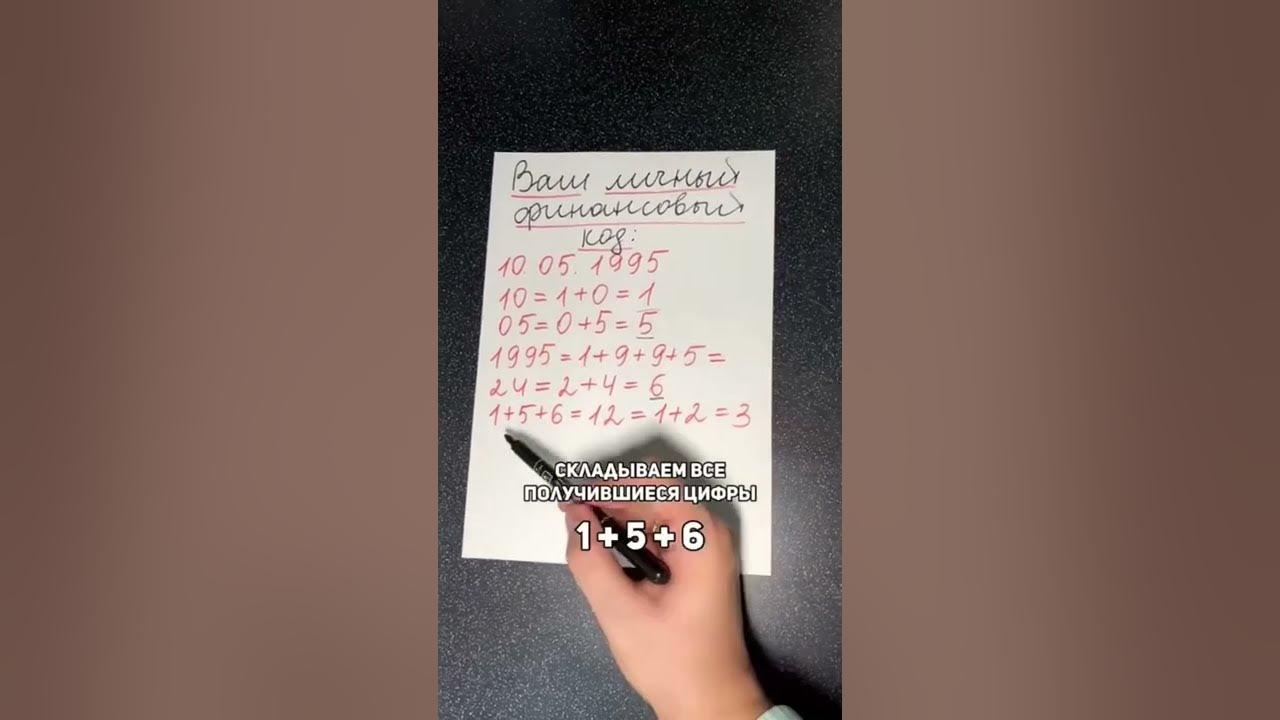 Ваш личный
финансовый
код:
10.05.1995
10=1+0=1
05=0+5=5
1995=1+9+9+5=
24=2+4=6
1+5+6=12=1+2=3
СКЛАДЫВАЕМ ВСЕ
ПОЛУЧИВШИЕСЯ ЦИФРЫ
1+5+6